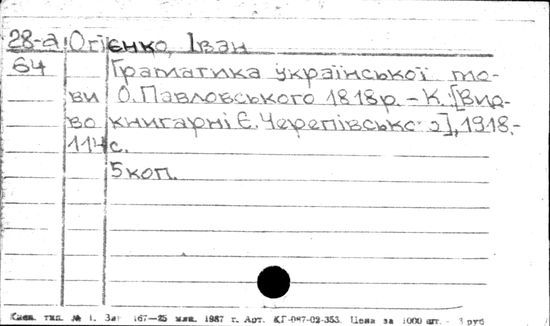 28-а Огієнко, Іван
64 Граматика української мо-
ви О. Павловського 1818р. - К.: [Вид-
во книгарні Є. Череповсько о], 1918.-
114 с.
5 коп.
Киев. тип. № 1. Зак 167—25 млн. 1987 г. Арт. КГ-087-02-353. Цена за 1000 шт. - 3 руб